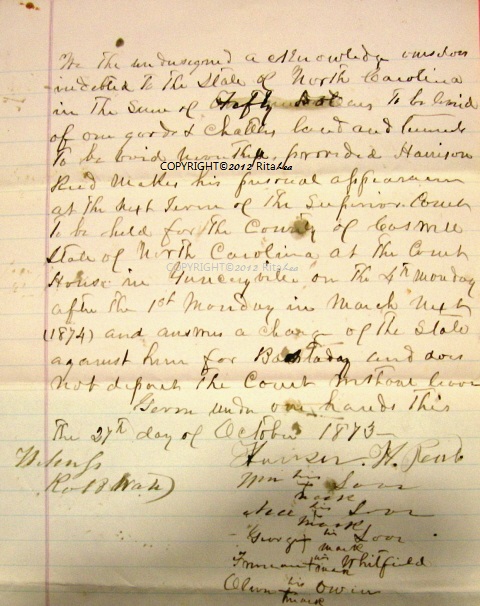 We the undersigned acknowledge ourselves
indebted to the State of North Carolina
in the Sum of Fifty Dollars to be levied
of our goods & Chattles land and
to be void provided Harrison
COPYRIGHT©2012 RitaLea
Reid Makes his personal appearance
at the Next Term of the Superior Court
to be held for the County of Caswell
State of North Carolina at the Court
COPYRIGHT©2012 RitaLea
House in Yanceyville on the 4th Monday
after the 1st Monday in March Next
(1874) and answer a charge of the State
against him for Bastady and does
not depart the Court without leave
Given under our hands this
the 27th day of October 1873
Witness
Harrison H.
Robt
Wm his Love
mark
his Love
mark
George his Love
mark
his Whitfield
mark
his Owen
mark